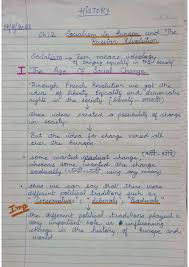 HISTORY
Ch:2 Socialism In Europe and The
Russian Revolution
Socialism → Ism means ideology
bringing equality in this society
I The Age of Social Change
• Through French Revolution we got the
idea of liberty, Equality and democratic
rights in the society
• These ideas created a possibility of change
in society
But the idea for change varied all
over the Europe
• some wanted gradual change,
whereas some wanted the change
radically
• thus we can say that there were
different political traditions such as
"Conservative" "liberals" "Radicals"
Imp
• The different political traditions played a
very important role in influencing
change in the history of Europe and
world